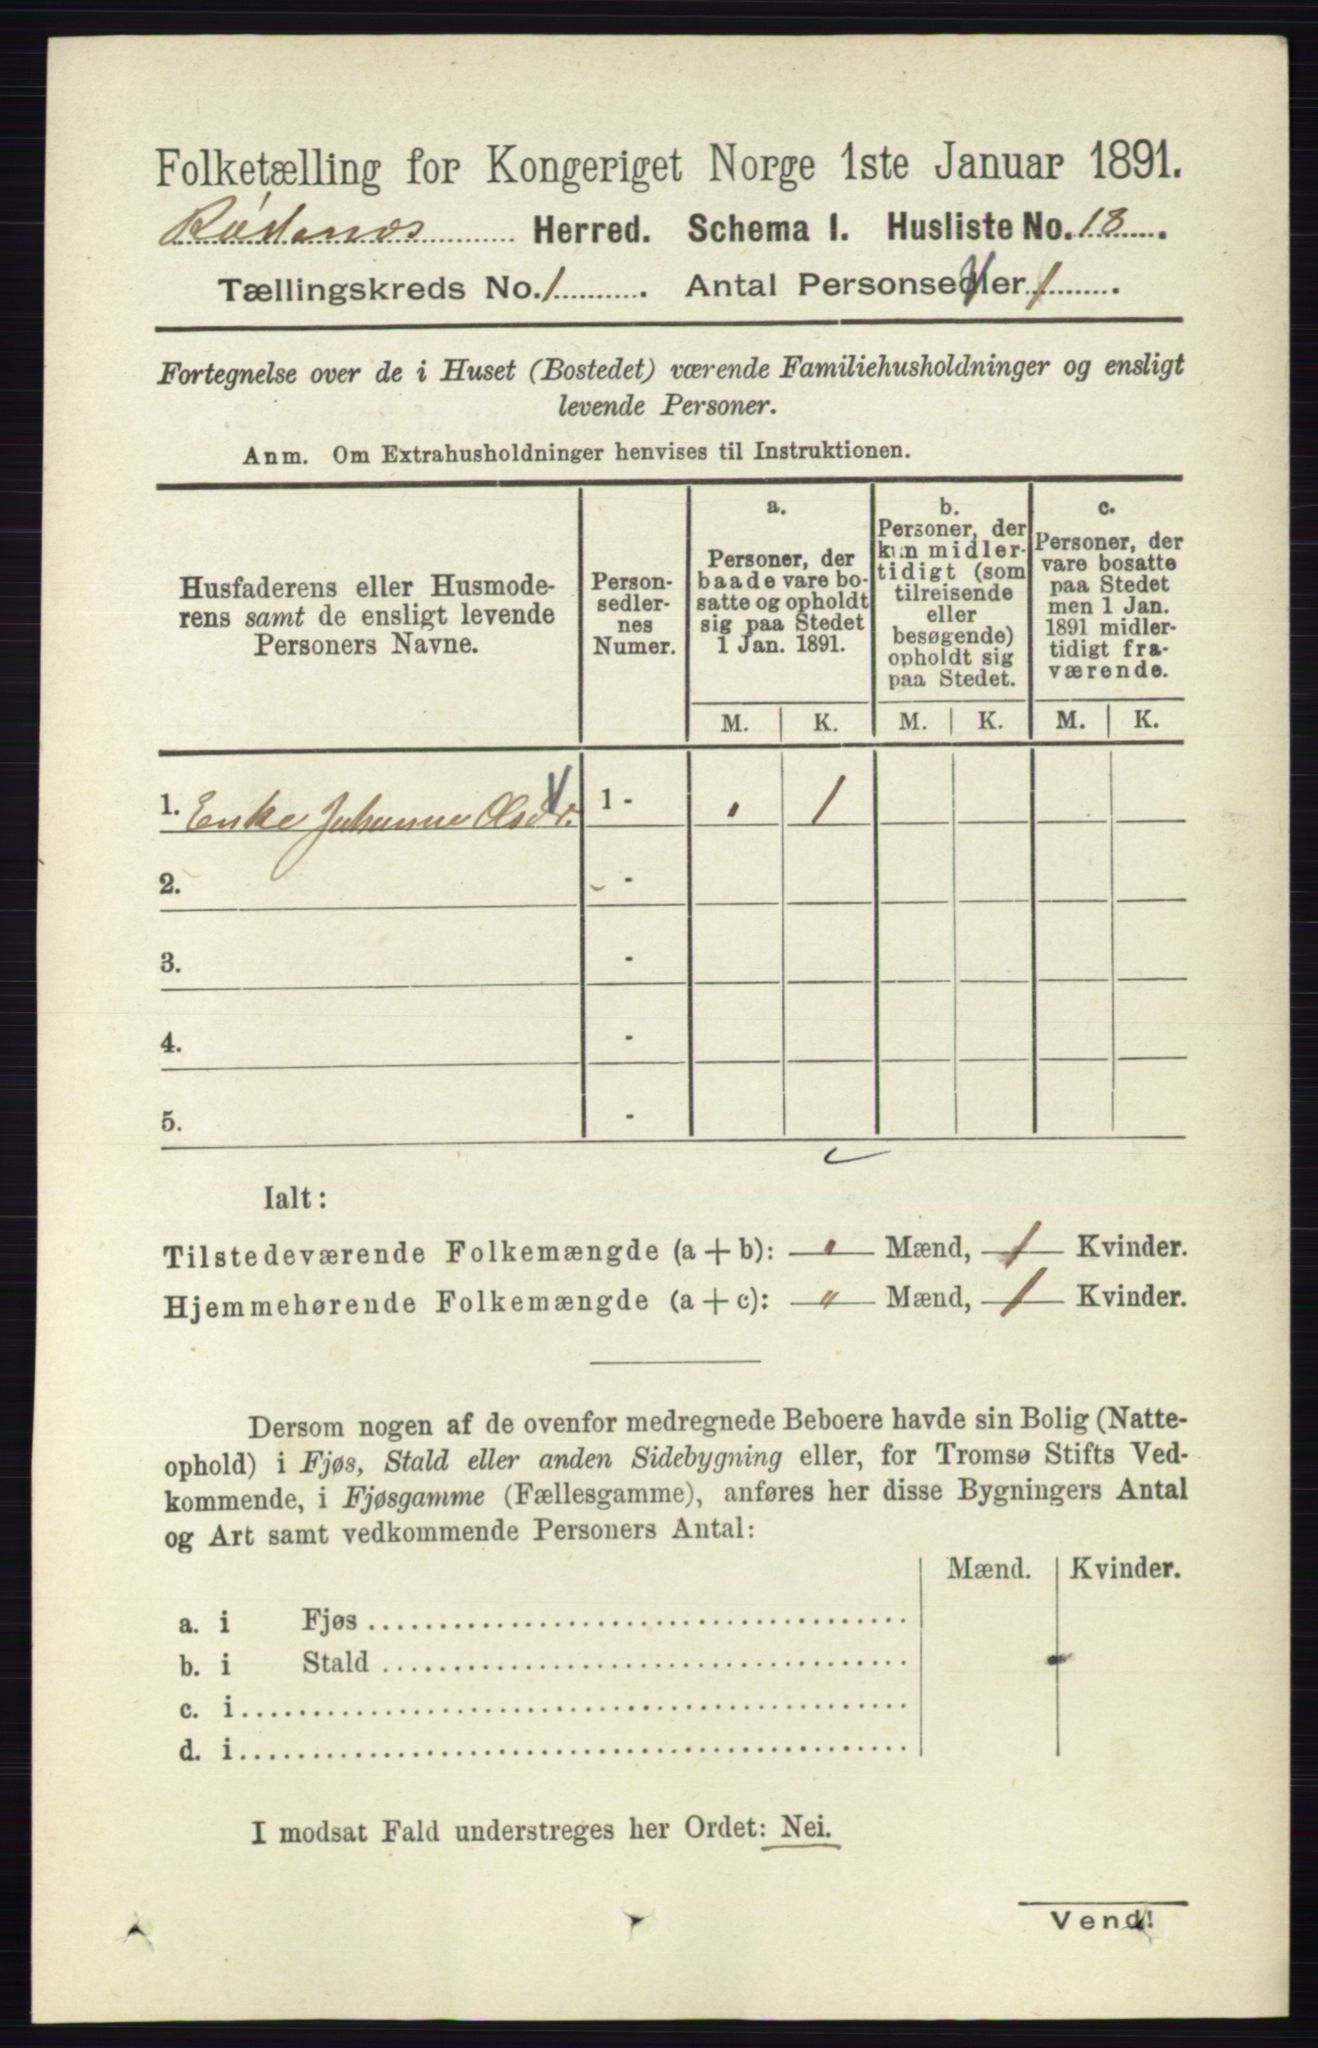 Folketælling for Kongeriget Norge 1ste Januar 1891.
Rødenes Herred. Schema I. Husliste No. 18.
Tællingskreds No. 1. Antal Personsedler 1.
Fortegnelse over de i Huset (Bostedet) værende Familiehusholdninger og ensligt
levende Personer.
Anm. Om Extrahusholdninger henvises til Instruktionen.
Husfaderens eller Husmode-
rens samt de ensligt levende
Personers Navne.
Person-
sedler-
nes
Numer.
a.
Personer, der
baade vare bo-
satte og opholdt
sig paa Stedet
1 Jan. 1891.
b.
Personer, der
kun midler-
tidigt (som
tilreisende
eller
besøgende)
opholdt sig
paa Stedet.
c.
Personer, der
vare bosatte
paa Stedet
men 1 Jan.
1891 midler-
tidigt fra-
værende.
M. K. M. K. M. K.
1. Enke Johanne Olsdr. 1 - " 1
2. -
3. -
4. -
5. -
Ialt:
Tilstedeværende Folkemængde (a + b): " Mænd, 1 Kvinder.
Hjemmehørende Folkemængde (a + c): " Mænd, 1 Kvinder.
Dersom nogen af de ovenfor medregnede Beboere havde sin Bolig (Natte-
ophold) i Fjøs, Stald eller anden Sidebygning eller, for Tromsø Stifts Ved-
kommende, i Fjøsgamme (Fællesgamme), anføres her disse Bygningers Antal
og Art samt vedkommende Personers Antal:
Mænd. Kvinder.
a. i Fjøs
b. i Stald
c. i
d. i
I modsat Fald understreges her Ordet: Nei.
Vend!